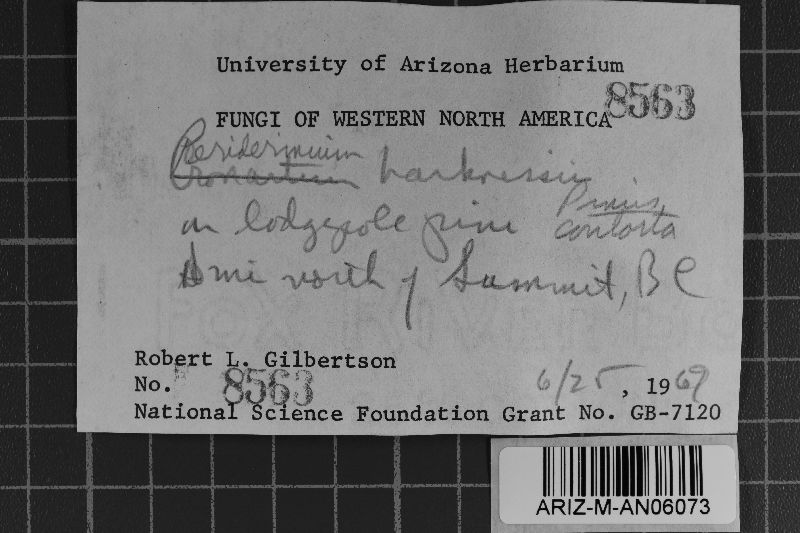 University of Arizona Herbarium
8563
FUNGI OF WESTERN NORTH AMERICA
Peridermium
Cronartium harknessii
on lodgepole pine Pinus contorta
mi north of Summit, BC
Robert L. Gilbertson
No. 8563 6/25, 1969
National Science Foundation Grant No. GB-7120
ARIZ-M-AN06073